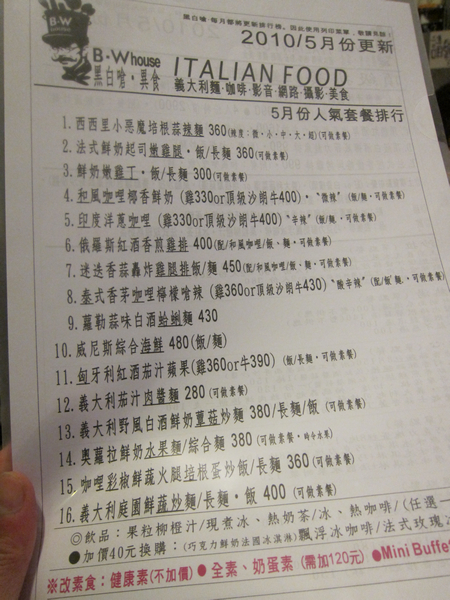 黑白嗆‧每月都將更新排行榜。因此使用列印菜單‧敬請見諒!
2010/5月份更新
B·W
B·Whouse
ITALIAN FOOD
黑白嗆‧異食
義大利麵‧咖啡‧影音‧網路‧攝影‧美食
5月份人氣套餐排行
1. 西西里小惡魔培根蒜辣麵 360(辣度：微‧小‧中‧大‧超)(可做素餐)
2. 法式鮮奶起司嫩雞腿‧飯/長麵 360(可做素餐)
3. 鮮奶嫩雞丁‧飯/長麵 300(可做素餐)
4. 和風咖哩椰香鮮奶 (雞330or頂級沙朗牛400)‧"微辣" (飯/麵‧可做素餐)
5. 印度洋蔥咖哩 (雞330or頂級沙朗牛400) "辛辣" (飯/麵‧可做素餐)
6. 俄羅斯紅酒香煎雞排 400(配/和風咖哩/飯‧麵‧可做素餐)
7. 迷迭香蒜轟炸雞腿排飯/麵 450(配/和風咖哩/飯‧麵‧可做素餐)
8. 泰式香茅咖哩檸檬嗆辣 (雞360or頂級沙朗牛430) "酸辛辣" (配/飯‧麵‧可做素餐)
9. 蘿勒蒜味白酒蛤蜊麵 430
10. 威尼斯綜合海鮮 480(飯/麵)
11. 匈牙利紅酒茄汁蘋果(雞360or牛390) (飯/長麵‧可做素餐)
12. 義大利茄汁肉醬麵 280 (可做素餐)
13. 義大利野風白酒鮮奶蕈菇炒麵 380/長麵/飯 (可做素餐)
14. 奧蘿拉鮮奶水果麵/綜合麵 380 (可做素餐‧時令水果)
15. 咖哩彩椒鮮蔬火腿培根蛋炒飯/長麵 360(可做素餐)
16. 義大利庭園鮮蔬炒麵/長麵‧飯 400 (可做素餐)
◎飲品：果粒柳橙汁/現煮冰、熱奶茶/冰、熱咖啡/(任選一
●加價40元換購：(巧克力鮮奶法國冰淇淋)飄浮冰咖啡/法式玫瑰
※改素食：健康素(不加價) ● 全素、奶蛋素 (需加120元) ●Mini Buffe